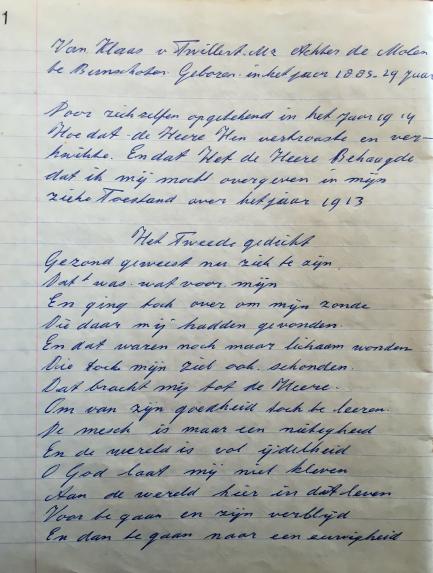 1
Van Klaas v Twillert. Mz Achter de Molen
te Bunschoten. Geboren in het jaar 1885-29 jaar
Voor zich zelfen opgetekend in het Jaar 1914
Hoe dat de Heere Hem vertrooste en ver-
kwikte. En dat Het de Heere Behaagde
dat ik mij mocht overgeven in mijn
zieke Toestand over het jaar 1913
Het Tweede gedicht
Gezond geweest nu ziek te zijn
Dat was wat voor mijn
En ging toch over om mijn zonde
Die daar mij hadden gevonden.
En dat waren noch maar lichaam wonden
Die toch mijn ziel ook schonden.
Dat bracht mij tot de Heere.
Om van zijn goedheid toch te leeren.
De mesch is maar een nietigheid
En de wereld is vol ijdelheid
O God laat mij niet kleven
Aan de wereld hier in dit leven
Voor te gaan en zijn verblijd
En dan te gaan naar een euwigheid